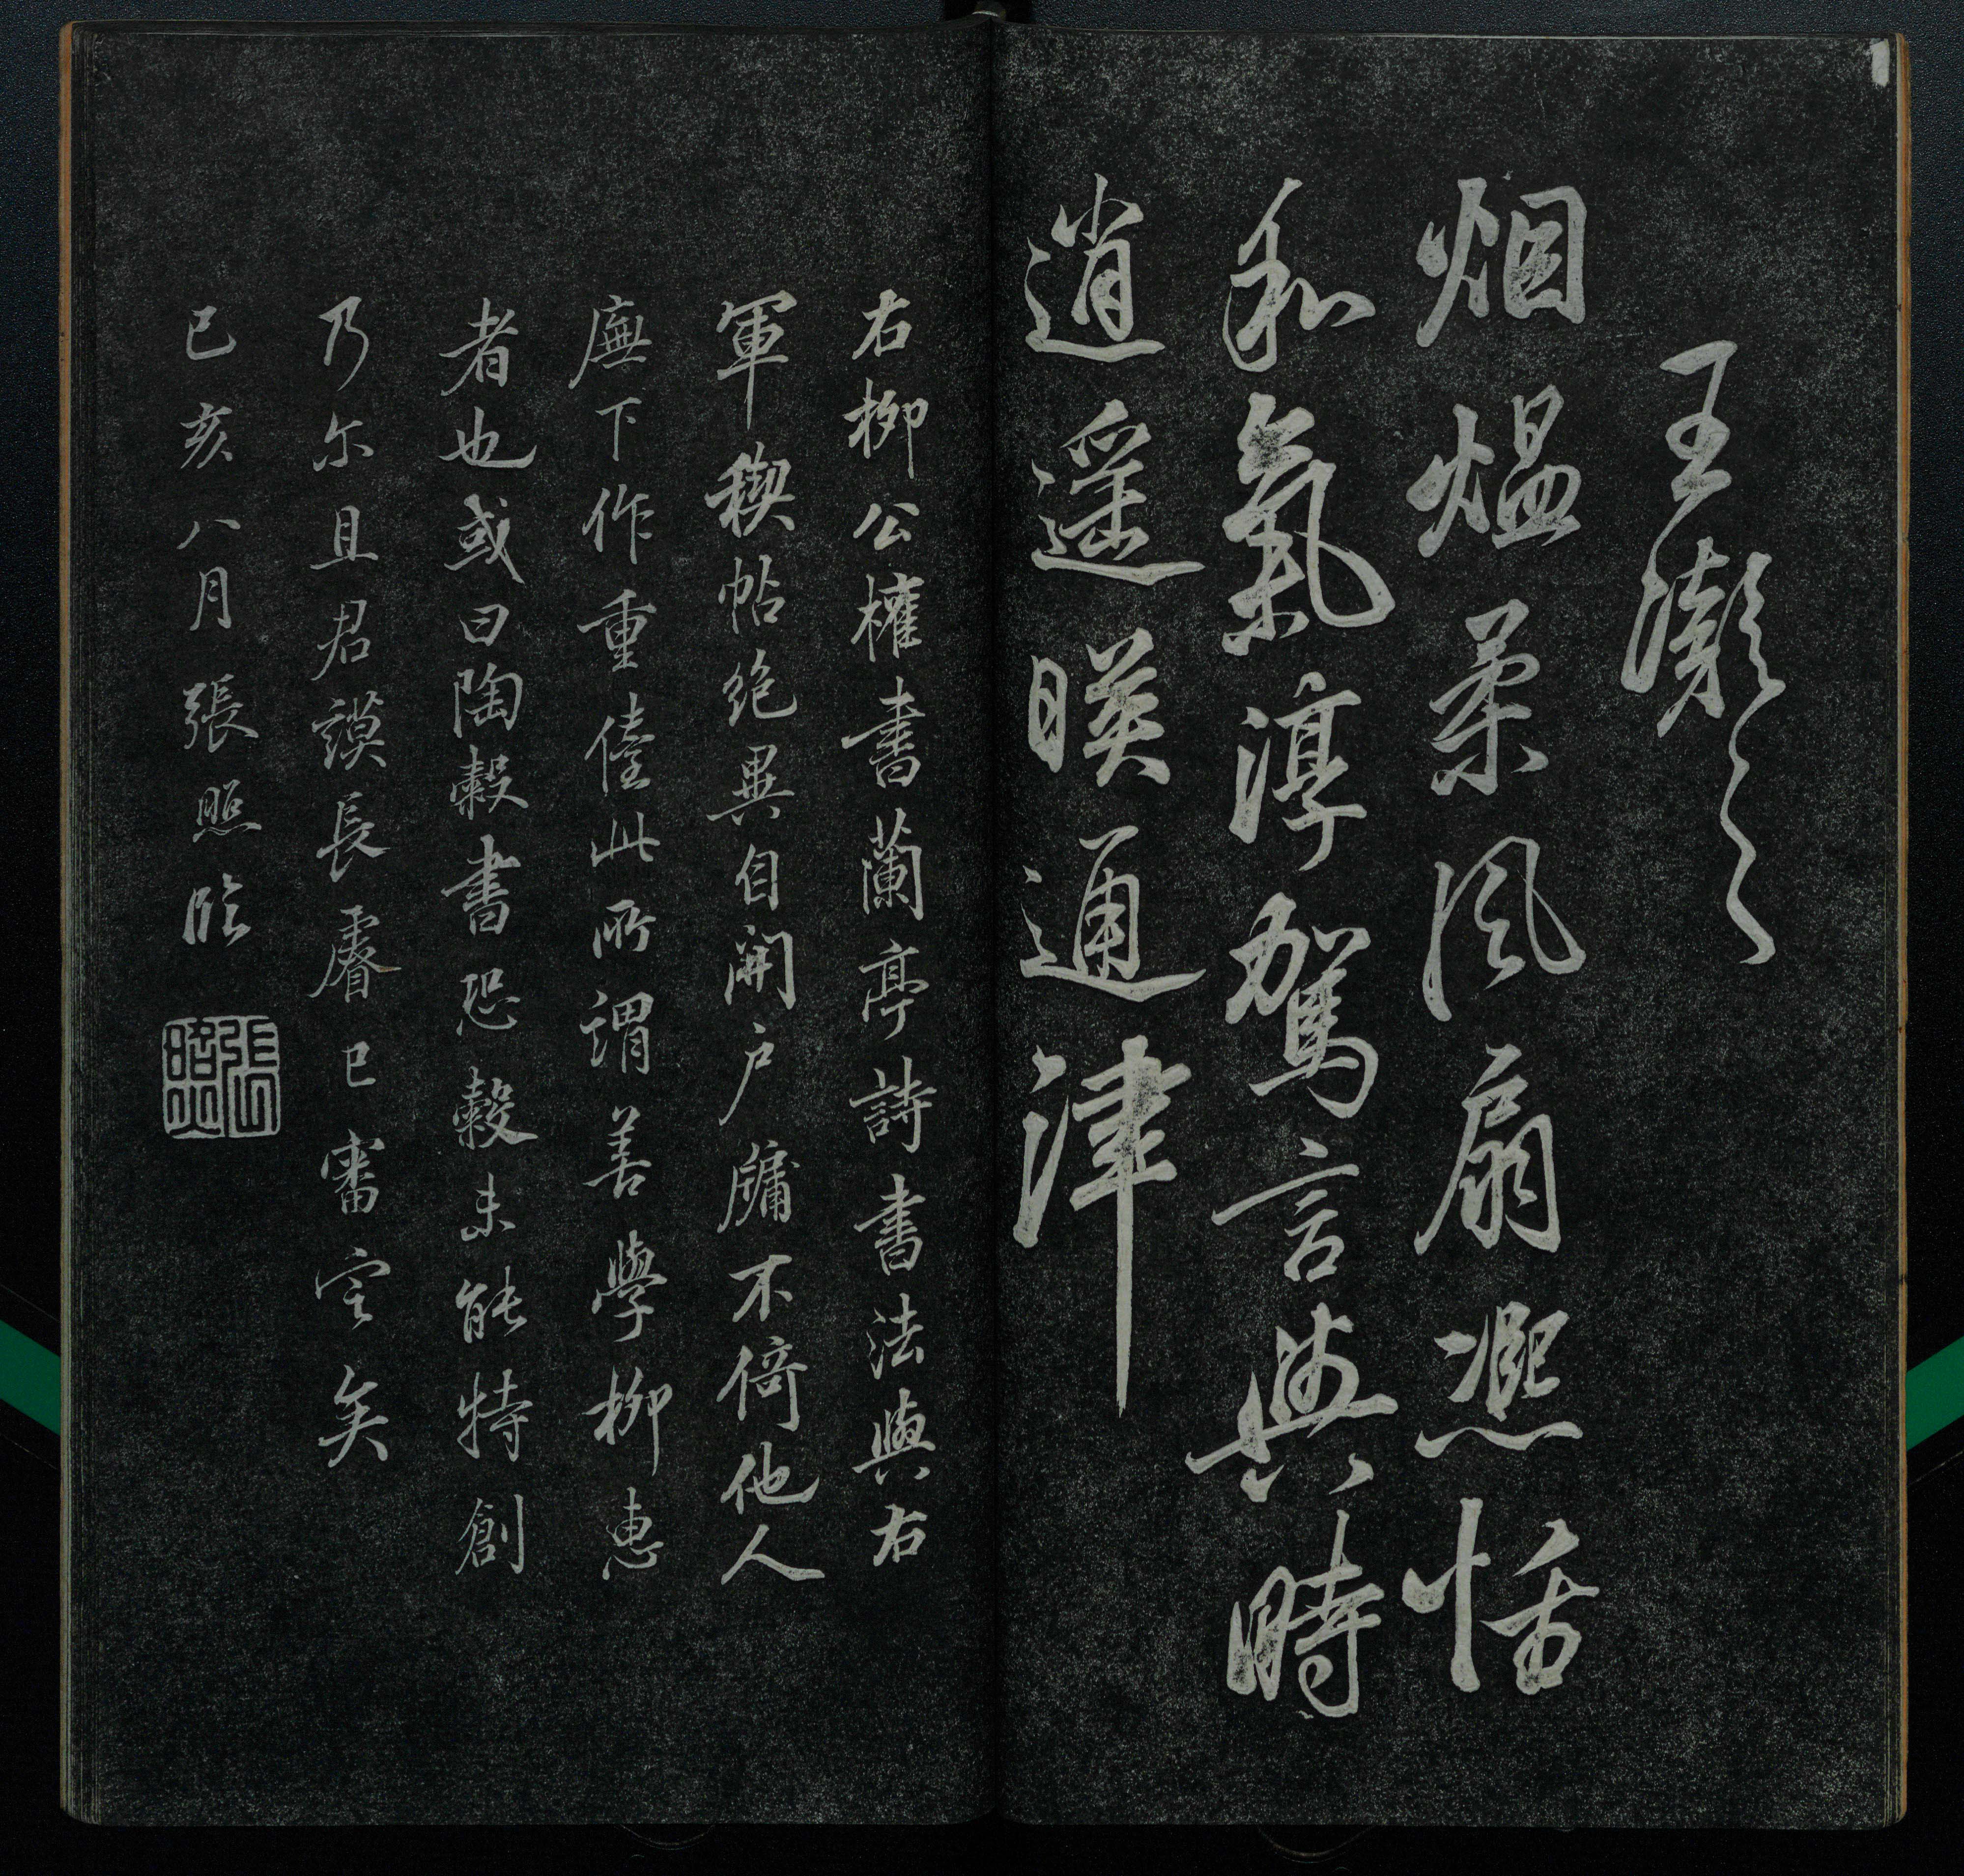 王凝之
烟熅柔風扇凞恬
和氣淳駕言與時
逍遥暎通津
右柳公權書蘭亭詩書法與右
軍稧帖絶異自開户牖不倚他人
廡下作重儓此所謂善學柳惠
者也或曰陶榖書恐榖未能特創
乃尔且君謨長睿已審定矣
己亥八月張照臨
張照